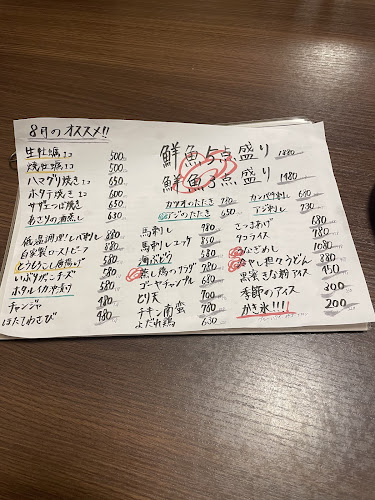 8月のオススメ!!
生牡蠣 1コ 500
焼牡蠣 1コ 500
ハマグリ焼き 1コ 650
ホタテ焼き 1コ 500
サザエつぼ焼き 650
あさりの酒蒸し 630
低温調理!レバ刺し 880
自家製ローストビーフ 880
とうもろこし唐揚げ 580
いぶりがっこチーズ 580
ホタルイカ沖漬け 580
チャンジャ 480
ほたてわさび 480
鮮魚5点盛り 1880
鮮魚3点盛り 1480
カツオのたたき 780
アジのたたき 650
馬刺し 980
馬刺しユッケ 850
海ぶどう 580
蒸し鶏のサラダ 780
ゴーヤチャンプル 680
とり天 700
チキン南蛮 780
よだれ鶏 630
カンパチ刺し 680
アジ刺し 730
さつまあげ 630
タコライス 980
うなぎめし 1080
冷やし担々うどん 880
黒蜜きな粉アイス 450
季節のアイス 300
かき氷!!!! 200